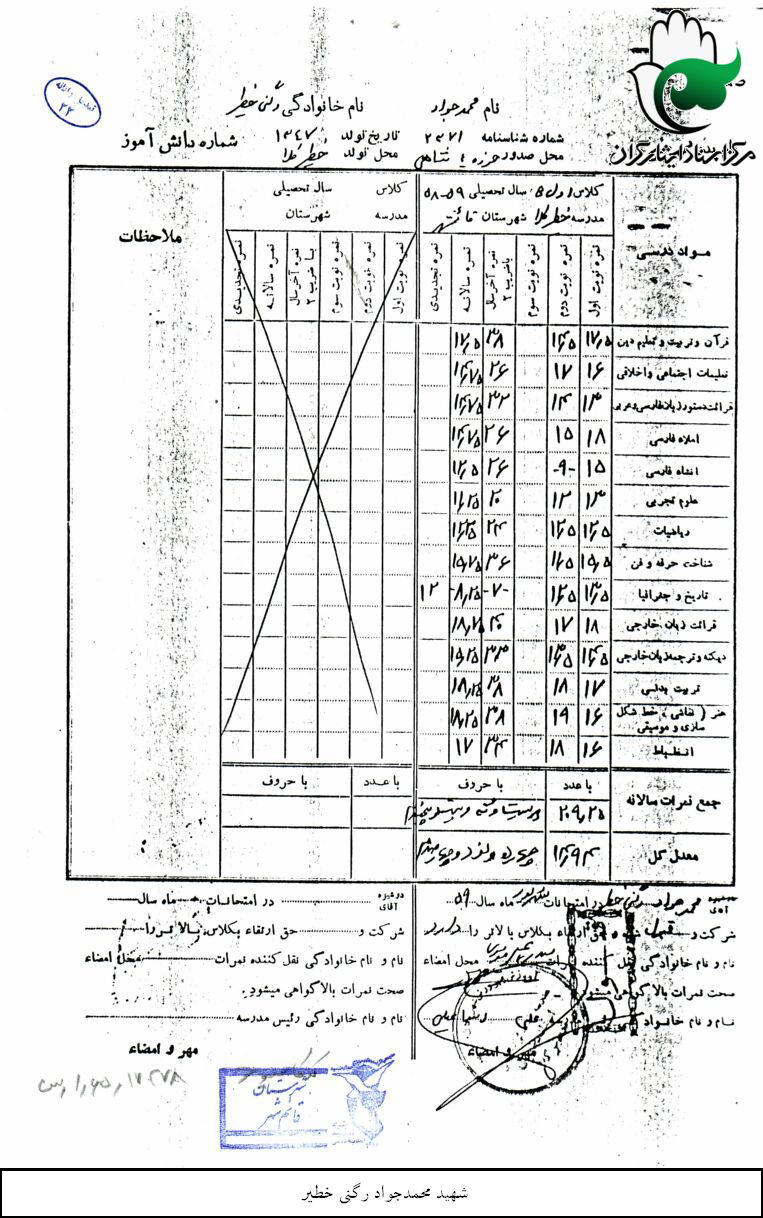 مرکز اسناد ایثارگران
نام محمدجواد نام خانوادگی رگنی خطیر
شماره شناسنامه ۲۳۷۱ تاریخ تولد ۱۳۴۷ شماره دانش آموز
محل صدور محل تولد خطیرکلا
مواد درسی
کلاس اول B سال تحصیلی ۵۹-۵۸
مدرسه خطیرکلا شهرستان قائمشهر
کلاس سال تحصیلی
مدرسه شهرستان
ملاحظات
نمره نوبت اول نمره نوبت دوم نمره نوبت سوم نمره آخر سال باضریب ۲ نمره سالانه نمره تجدیدی
نمره نوبت اول نمره نوبت دوم نمره نوبت سوم نمره آخر سال با ضریب ۲ نمره سالانه نمره تجدیدی
قرآن و تربیت و تعلیم دین ۱۷٫۵ ۳۸ ۱۷٫۵
تعلیمات اجتماعی و اخلاقی ۱۶ ۱۷ ۲۶ ۱۴٫۷۵
قرائت دستور زبان فارسی و عربی ۱۳ ۱۴ ۳۲ ۱۴٫۷۵
املاء فارسی ۱۸ ۱۵ ۲۶ ۱۴٫۷۵
انشاء فارسی ۱۵ -۹- ۲۶ ۱۲٫۵
علوم تجربی ۱۳ ۱۲ ۲۰ ۱۱٫۲۵
ریاضیات ۱۲٫۵ ۱۲٫۵ ۲۴ ۱۲٫۲۵
شناخت حرفه و فن ۱۵٫۵ ۱۱٫۵ ۳۶ ۱۵٫۷۵
تاریخ و جغرافیا ۱۳٫۵ ۱۲٫۵ -۷- ۸٫۲۵ ۱۲
قرائت زبان خارجی ۱۸ ۱۷ ۴۰ ۱۸٫۷۵
دیکته و ترجمه زبان خارجی ۱۴٫۵ ۱۳٫۵ ۳۳ ۱۵٫۲۵
تربیت بدنی ۱۷ ۱۸ ۳۸ ۱۸٫۲۵
هنر ( نقاشی ، خط شکل سازی و موسیقی ۱۶ ۱۹ ۳۸ ۱۸٫۲۵
انضباط ۱۶ ۱۸ ۳۴ ۱۷
با عدد با حروف با عدد با حروف
جمع نمرات سالانه ۲۰۹٫۲۵ دویست و نه و بیست و پنج صدم
معدل کل ۱۴٫۹۴ چهارده و نود و چهار صدم
دوشیزه آقای محمدجواد رگنی خطیر در امتحانات شهریور ماه سال ۵۹
شرکت و قبول شده و حق ارتقاء بکلاس بالاتر را دارد
نام و نام خانوادگی نقل کننده نمرات محل امضاء
صحت نمرات بالا گواهی میشود
نام و نام خانوادگی
مهر و امضاء
دوشیزه آقای در امتحانات ماه سال
شرکت و حق ارتقاء بکلاس بالاتر را
نام و نام خانوادگی نقل کننده نمرات محل امضاء
صحت نمرات بالا گواهی میشود
نام و نام خانوادگی رئیس مدرسه
مهر و امضاء
قائم شهر
شهید محمدجواد رگنی خطیر